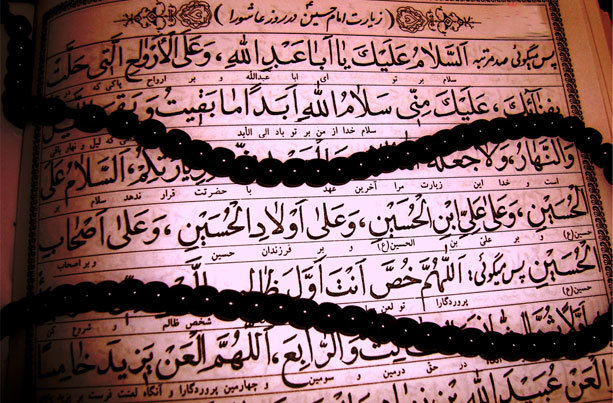 زیارت امام حسین ع در روز عاشورا
پس میگوئی صد مرتبه اَلسَّلامُ عَلَیْكَ یا اَباعَبْدِ اللهِ، وَعَلَی الْاَرْواحِ الَّتی حَلَّتْ
سلام بر تو ای ابا عبدالله و بر ارواح پاکی که
بِفِنائِكَ، عَلَیْكَ مِنّی سَلامُ اللهِ اَبَداً ما بَقیتُ وَبَقِیَ اللَّیْلُ
سلام خدا از من بر تو باد الی الابد
وَالنَّهارُ، وَلا جَعَلَهُ اللهُ زِیارَتِكُمْ، اَلسَّلامُ عَلَی
است و خدا این زیارت مرا آخرین عهد با حضرتت قرار ندهد سلام بر
الْحُسَیْنِ، وَعَلی عَلِیِّ ابْنِ الْحُسَیْنِ، وَعَلی اَوْلادِ الْحُسَیْنِ، وَعَلی اَصْحابِ
حسین (ع) و بر علی بن الحسین(ع) و بر فرزندان حسین و بر اصحاب
الْحُسَیْنِ پس میگوئی: اَللّهُمَّ خُصَّ اَنْتَ اَوَّلَ ظالِمٍ
حسین(ع) پروردگارا تو لعن شخص ظالم و شروع کن
اَوَّلاً ثُمَّ وَالرّابِعَ، اَللّهُمَّ الْعَنْ یَزیدَ خامِساً
در حق دومین و سومین و چهارمین پروردگارا و آنگاه لعنت فرست بر یزید
الْعَنْ عُبَیْدَ اللهِ بْنَ